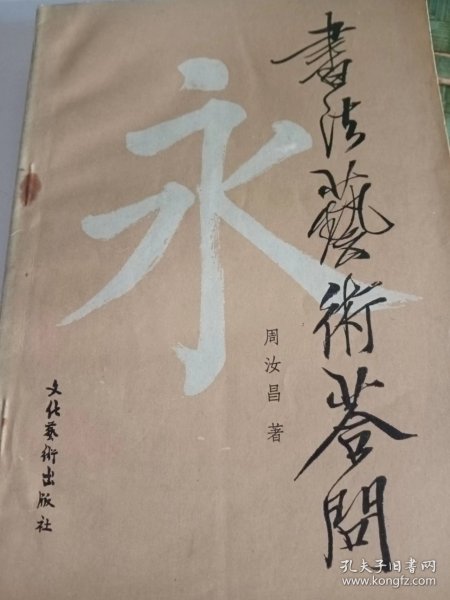 書法藝術荅問
永
周汝昌 著
文化藝術出版社
孔夫子旧书网
www.kongfz.com